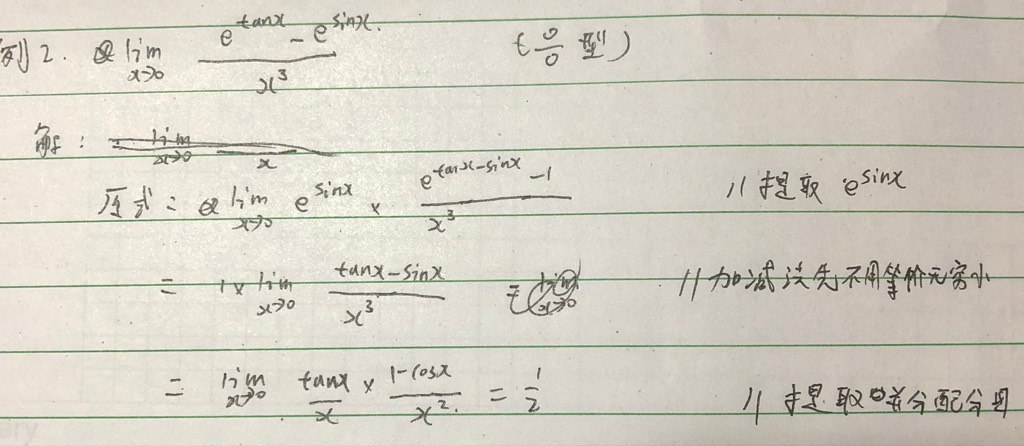 例2. lim x→0 (e^tanx - e^sinx)/x³ (0/0 型)
解:
原式 = lim x→0 e^sinx × (e^(tanx-sinx) - 1)/x³ // 提取 e^sinx
= 1 × lim x→0 (tanx - sinx)/x³ // 加减法先不用等价无穷小
= lim x→0 tanx/x × (1-cosx)/x² = 1/2 // 提取 并分配分母